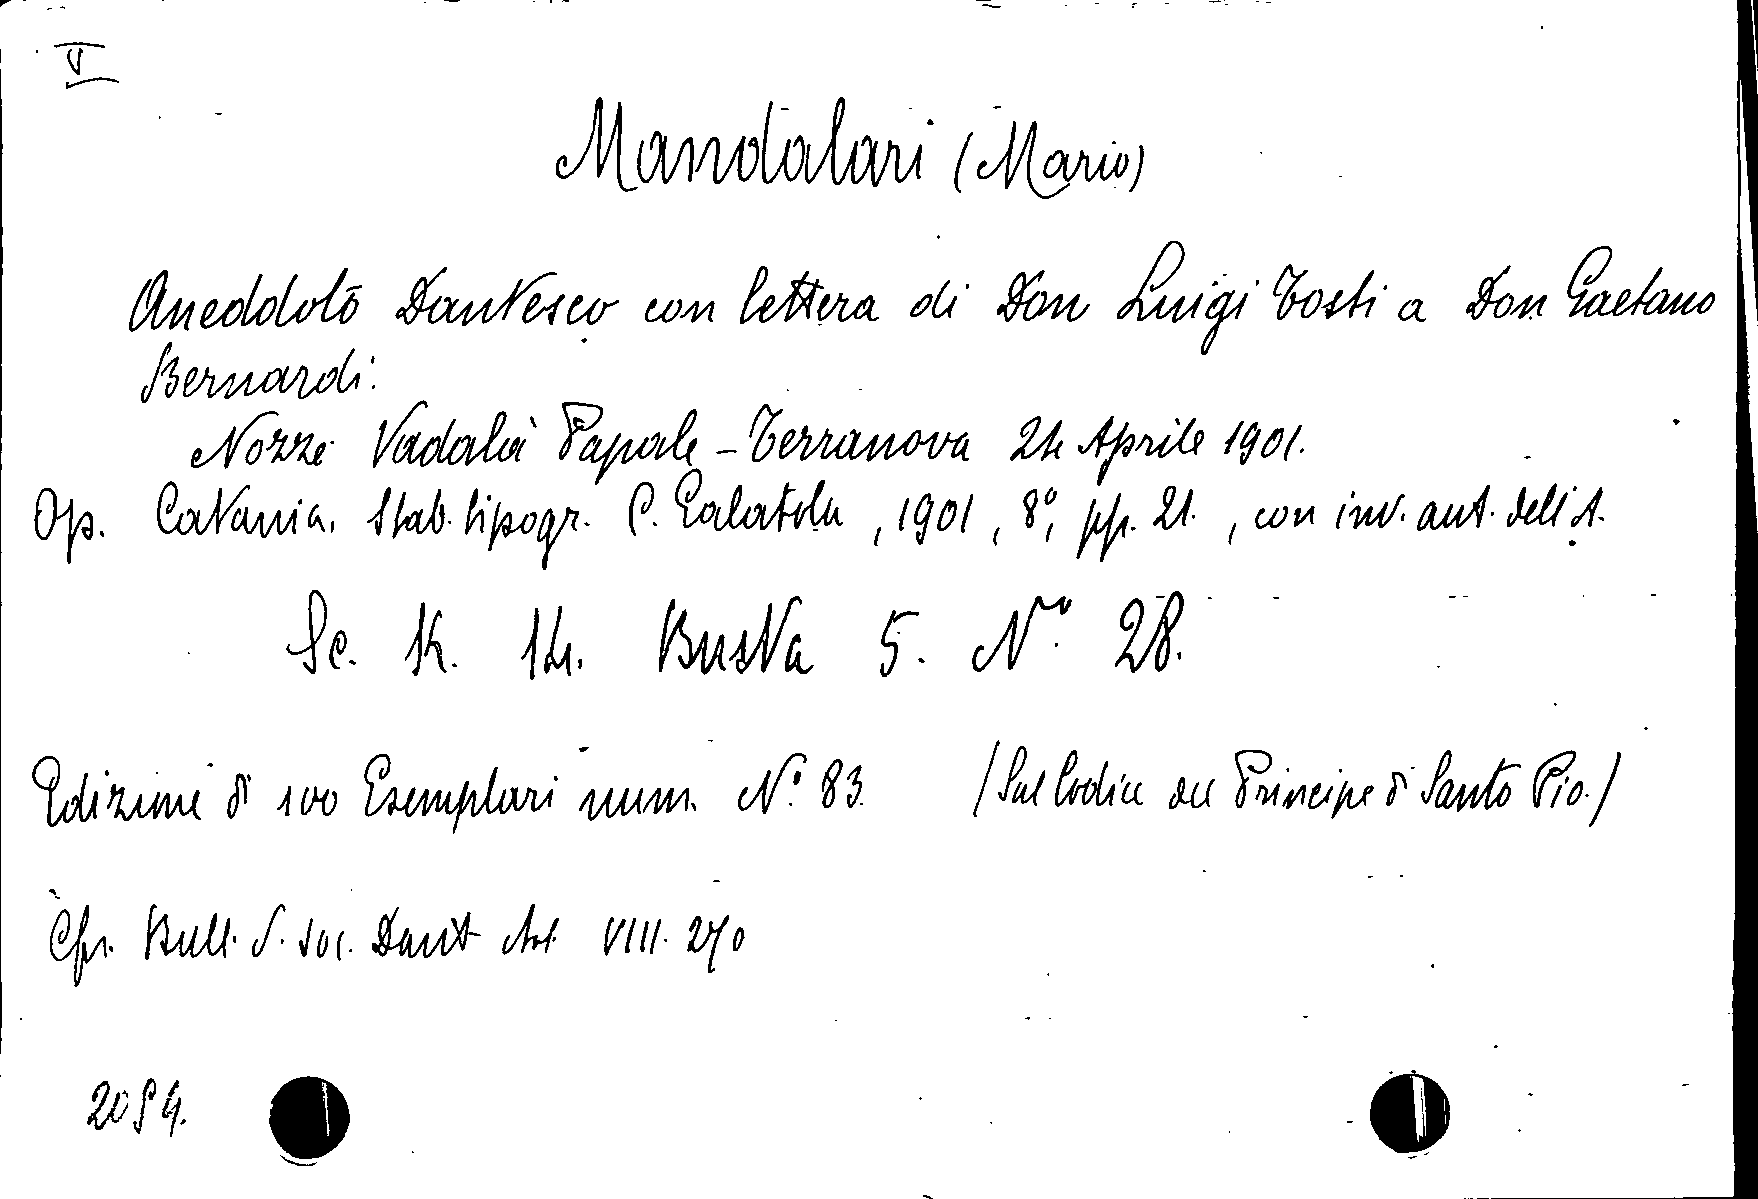 V
Mandalari (Mario)
Aneddoto Dantesco con lettera di Don Luigi Tosti a Don Gaetano
Bernardi.
Nozze Vadalà Papale - Terranova 24 Aprile 1901.
Op. Catania. Stab. tipogr. C. Galatola, 1901, 8º, pp. 21., con inv. aut. dell'A.
Sc. K. 14. Busta 5. Nº 28.
Edizione di 100 Esemplari num. Nº 83. (Sul Codice del Principe di Santo Pio.)
Cfr. Bull. S. soc. Dant VIII. 270